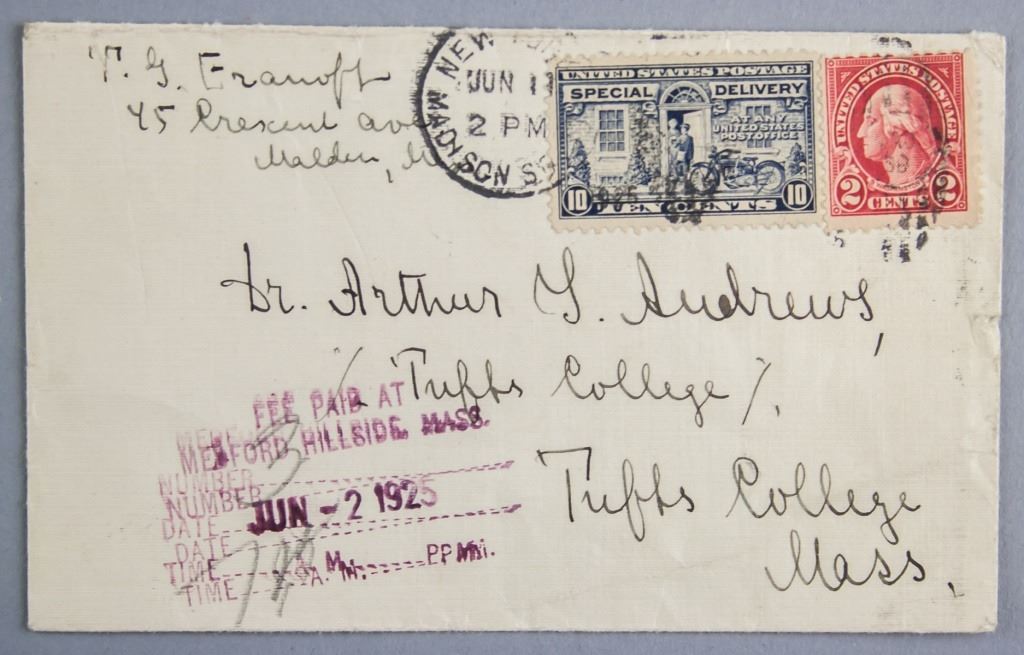 T. G. Eranoff
45 Crescent ave
Malden, M
NEW YORK
JUN 1
2 PM
MADISON SQ
UNITED STATES POSTAGE
SPECIAL DELIVERY
AT ANY
UNITED STATES
POST OFFICE
10 TEN CENTS 10
UNITED STATES POSTAGE
2 CENTS 2
Dr. Arthur I. Andrews,
% Tufts College %.
Tufts College
Mass.
FEE PAID AT
MEDFORD HILLSIDE, MASS.
NUMBER
NUMBER
DATE JUN - 2 1925
DATE
TIME M. P.M.
TIME A. M.